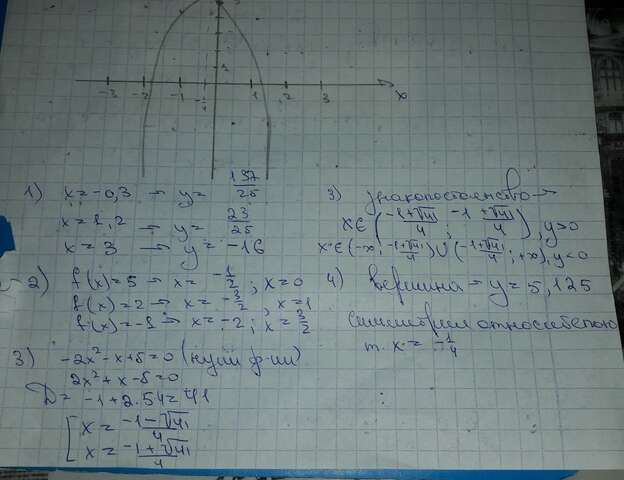 -3 -2 -1 1 2 3 x
1) x = -0,3 → y = 137/25
x = 1,2 → y = 23/25
x = 3 → y = -16
2) f(x) = 5 → x = -1/2 ; x = 0
f(x) = 2 → x = -3/2 , x = 1
f(x) = -1 → x = -2 ; x = 3/2
3) -2x² - x + 5 = 0 (нули ф-ии)
2x² + x - 5 = 0
x = (-1-√41)/4
x = (-1+√41)/4
3) знакопостоянство →
4) вершина → y = 5,125
симметрия относительно
т. x = -1/4